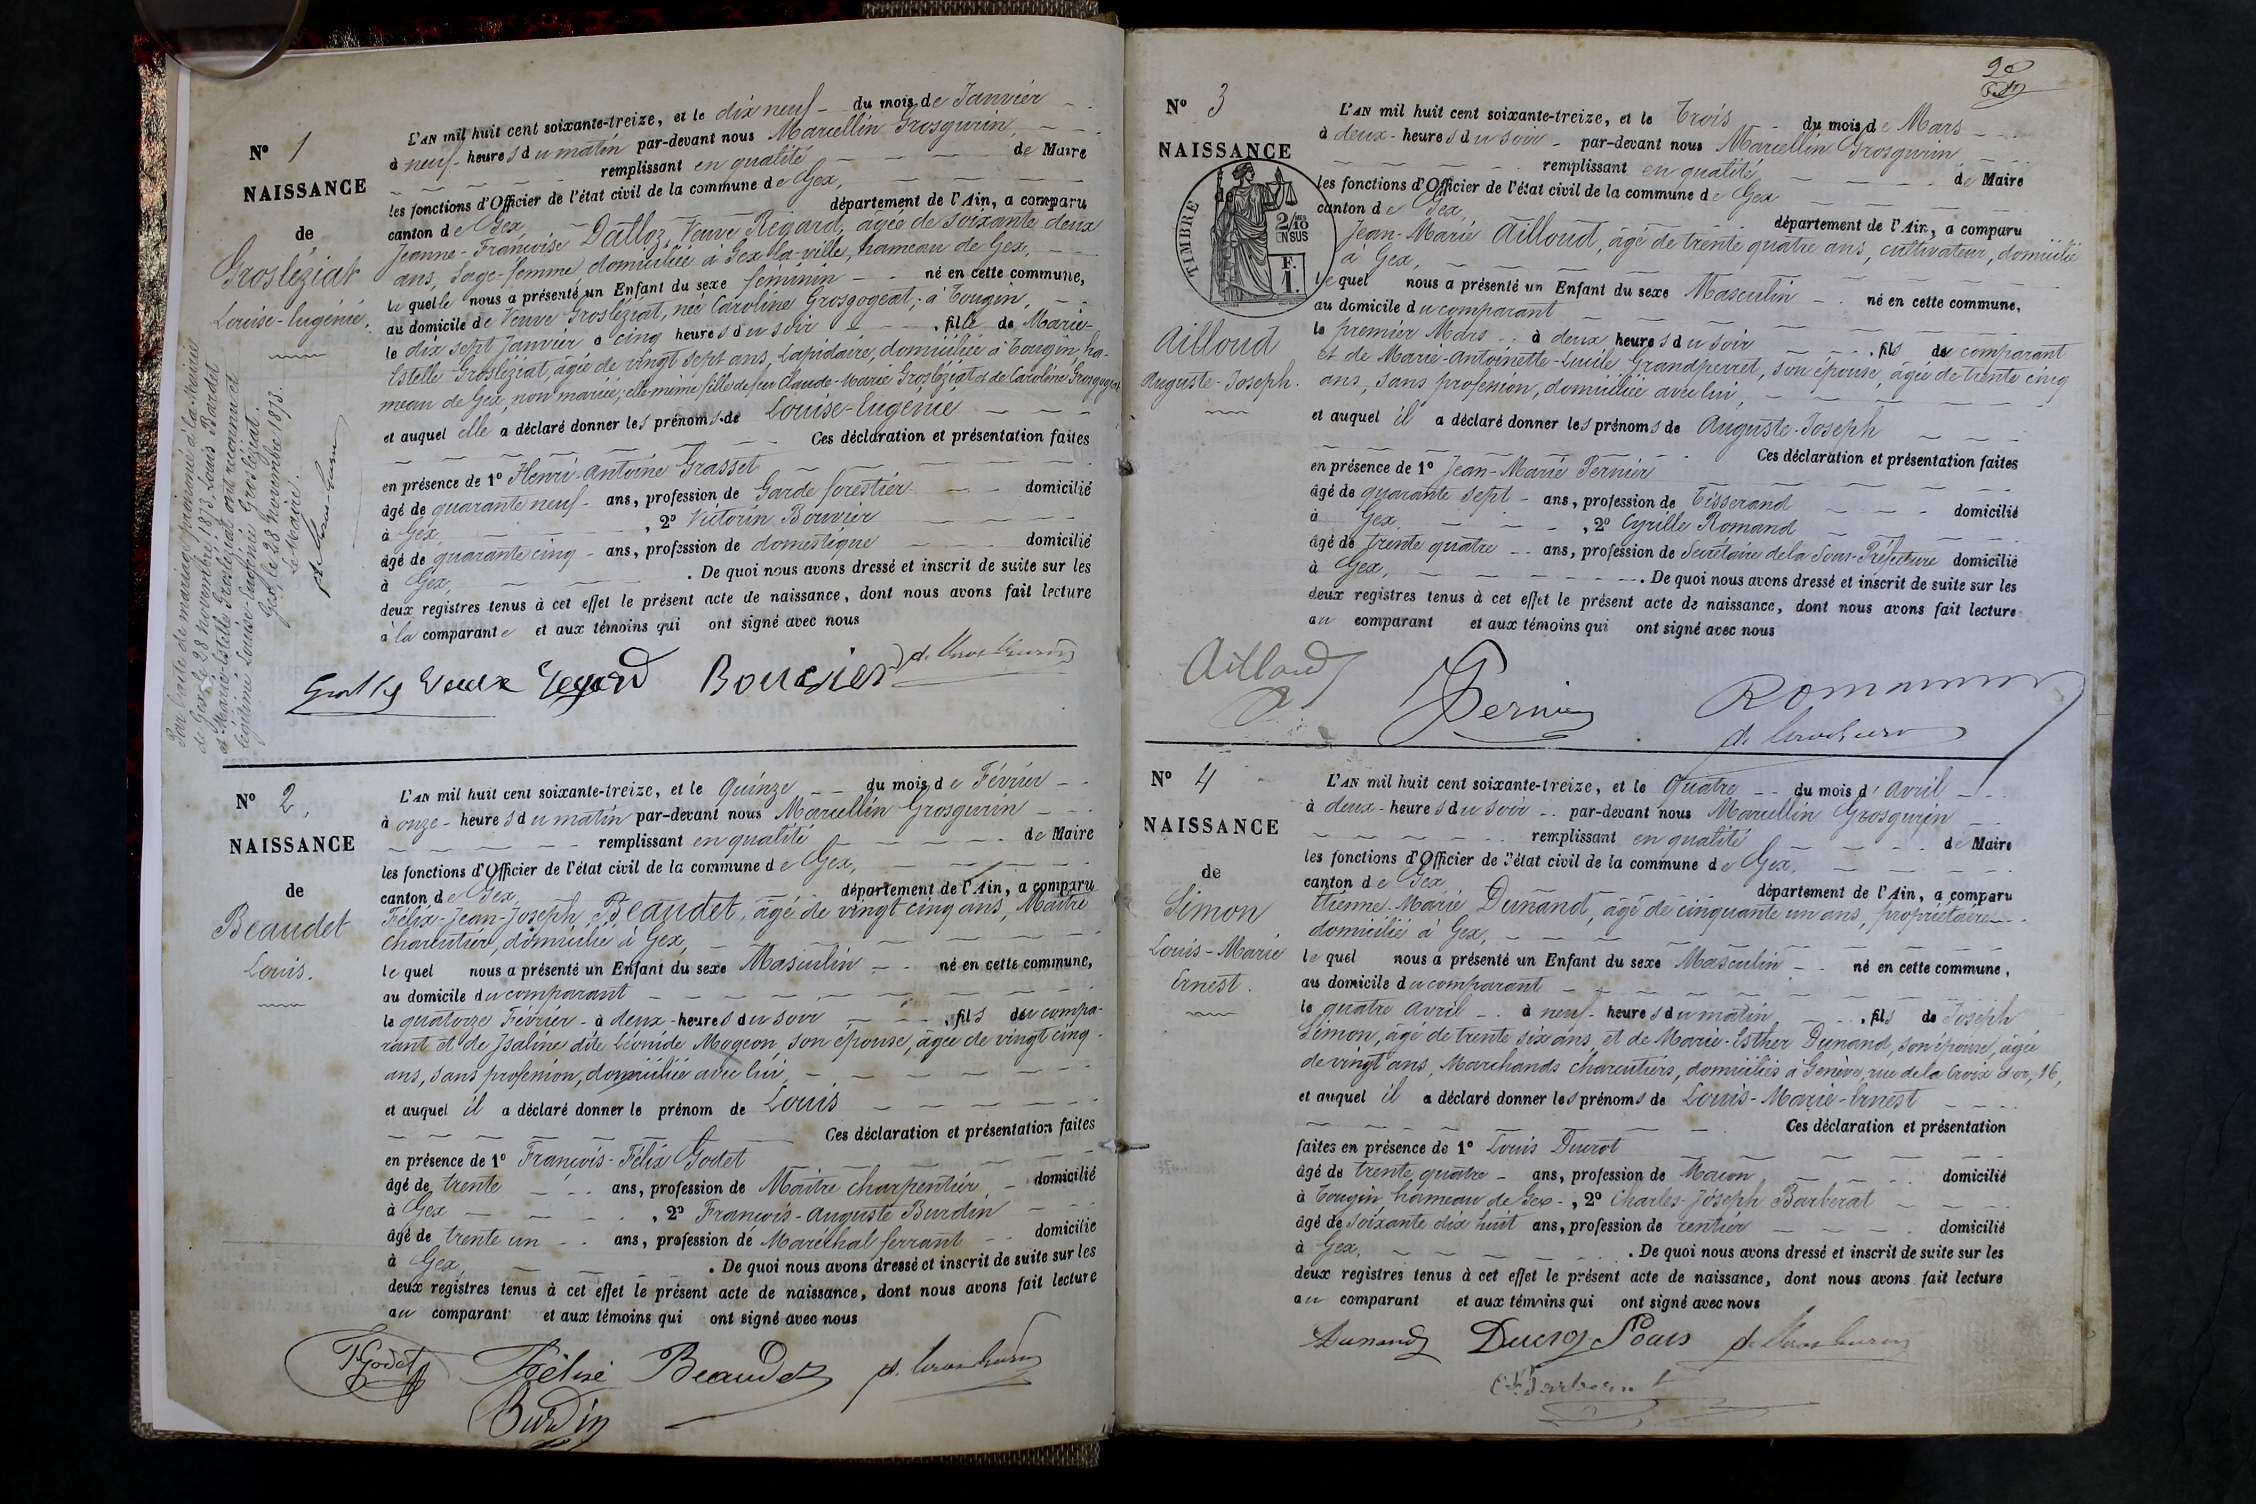 N° 1
NAISSANCE
de
Grosléziat
Louise-Eugénie.
Par l'acte de mariage foriminé à la Mairie
de Gex le 28 novembre 1873, Louis Bardet
et Marie-Estelle Grosléziat ont reconnu et
légitimé Louise-Eugénie Grosléziat.
Gex, le 28 novembre 1873.
Le Maire.
L'AN mil huit cent soixante-treize, et le dix neuf du mois de Janvier
à neuf heures du matin par-devant nous Marcellin Grosgurin,
remplissant en qualité de Maire
les fonctions d'Officier de l'état civil de la commune de Gex,
canton de Gex, département de l'Ain, a comparu
Jeanne-Françoise Dalloz, Veuve Rigard, âgée de soixante deux
ans, Sage-femme domiciliée à Gex la-ville, hameau de Gex,
laquelle nous a présenté un Enfant du sexe féminin né en cette commune,
au domicile de Veuve Grosléziat, née Caroline Grosgogeat, à Tougin,
le dix sept Janvier à cinq heures du soir, fille de Marie-
Estelle Grosléziat, âgée de vingt sept ans, Lapidaire, domiciliée à Tougin, ha-
meau de Gex, non mariée, elle-même fille de feu Claude-Marie Grosléziat et de Caroline Grosgogeat
et auquel elle a déclaré donner les prénoms de Louise-Eugénie
Ces déclaration et présentation faites
en présence de 1° Henri-Antoine Grasset
âgé de quarante neuf ans, profession de Garde forestier domicilié
à Gex, 2° Victorin Bouvier
âgé de quarante cinq ans, profession de domestique domicilié
à Gex, . De quoi nous avons dressé et inscrit de suite sur les
deux registres tenus à cet effet le présent acte de naissance, dont nous avons fait lecture
à la comparante et aux témoins qui ont signé avec nous
Bouvier
N° 2,
NAISSANCE
de
Beaudet
Louis.
L'AN mil huit cent soixante-treize, et le Quinze du mois de Février
à onze heures du matin par-devant nous Marcellin Grosgurin
remplissant en qualité de Maire
les fonctions d'Officier de l'état civil de la commune de Gex,
canton de Gex, département de l'Ain, a comparu
Félix-Jean-Joseph Beaudet, âgé de vingt cinq ans, Maître
charcutier, domicilié à Gex,
lequel nous a présenté un Enfant du sexe Masculin né en cette commune,
au domicile du comparant
le quatorze Février à deux heures du soir, fils du compa-
rant et de Isaline dite Léonide Mogeon, son épouse, âgée de vingt cinq
ans, sans profession, domiciliée avec lui,
et auquel il a déclaré donner le prénom de Louis
Ces déclaration et présentation faites
en présence de 1° François-Félix Godet
âgé de trente ans, profession de Maître charpentier, domicilié
à Gex, 2° François-Auguste Burdin
âgé de trente un ans, profession de Maréchal ferrant domicilié
à Gex, . De quoi nous avons dressé et inscrit de suite sur les
deux registres tenus à cet effet le présent acte de naissance, dont nous avons fait lecture
au comparant et aux témoins qui ont signé avec nous
F Godet Félix Beaudet
Burdin
2e
N° 3
NAISSANCE
de
TIMBRE
2/10 EN SUS
F. 1.
Ailloud
Auguste-Joseph.
L'AN mil huit cent soixante-treize, et le Trois du mois de Mars
à deux heures du soir par-devant nous Marcellin Grosgurin
remplissant en qualité de Maire
les fonctions d'Officier de l'état civil de la commune de Gex
canton de Gex, département de l'Ain, a comparu
Jean-Marie Ailloud, âgé de trente quatre ans, cultivateur, domicilié
à Gex,
lequel nous a présenté un Enfant du sexe Masculin né en cette commune,
au domicile du comparant
le premier Mars à deux heures du soir, fils du comparant
et de Marie-Antoinette-Lucile Grandperret, son épouse, âgée de trente cinq
ans, sans profession, domiciliée avec lui,
et auquel il a déclaré donner les prénoms de Auguste-Joseph
Ces déclaration et présentation faites
en présence de 1° Jean-Marie Pernier
âgé de quarante sept ans, profession de Tisserand domicilié
à Gex, 2° Cyrille Romand
âgé de trente quatre ans, profession de Secrétaire de la Sous-Préfecture domicilié
à Gex, . De quoi nous avons dressé et inscrit de suite sur les
deux registres tenus à cet effet le présent acte de naissance, dont nous avons fait lecture
au comparant et aux témoins qui ont signé avec nous
Ailloud Pernier Romand
N° 4
NAISSANCE
de
Simon
Louis-Marie
Ernest.
L'AN mil huit cent soixante-treize, et le Quatre du mois d'Avril
à deux heures du soir par-devant nous Marcellin Grosgurin
remplissant en qualité de Maire
les fonctions d'Officier de l'état civil de la commune de Gex,
canton de Gex département de l'Ain, a comparu
Etienne-Marie Dunand, âgé de cinquante un ans, propriétaire
domicilié à Gex,
lequel nous a présenté un Enfant du sexe Masculin né en cette commune,
au domicile du comparant
le quatre Avril à neuf heures du matin, fils de Joseph
Simon, âgé de trente six ans, et de Marie-Esther Dunand, son épouse, âgée
de vingt ans, Marchands charcutiers, domiciliés à Genève, rue de la Croix d'or, 16,
et auquel il a déclaré donner les prénoms de Louis-Marie-Ernest
Ces déclaration et présentation
faites en présence de 1° Louis Ducrot
âgé de trente quatre ans, profession de Maçon domicilié
à Tougin, hameau de Gex, 2° Charles-Joseph Barberat
âgé de soixante dix huit ans, profession de rentier domicilié
à Gex, . De quoi nous avons dressé et inscrit de suite sur les
deux registres tenus à cet effet le présent acte de naissance, dont nous avons fait lecture
au comparant et aux témoins qui ont signé avec nous
Dunand Ducrot Louis